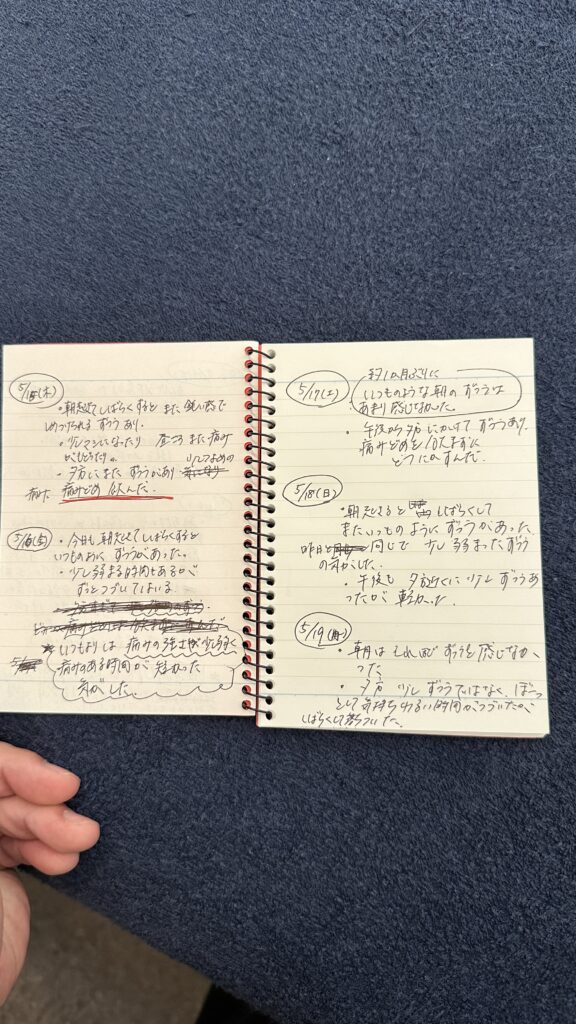 5/15(木)
・朝起きてしばらくすると また 鈍い感で
しめつけられる ずつう あり.
・少しマシになったり またまた 痛み
がもどったり。
・夕方に また ずつうがあり
痛み止め 飲んだ.
5/16(金)
・今日も 朝起きて しばらくすると
いつものように ずつうがあった。
・少し弱まる時間もあるが
ずっとつづいている
いつもよりは 痛みの強さが少し弱く
痛みのある時間が 短かった
気がした
5/17(土)
約1ヵ月ぶりに
いつものような朝の ずつうは
あまり感じなかった。
・午後から夕方にかけて ずつうあり.
痛みどめを飲まずに
どうにかすんだ.
5/18(日)
・朝起きると しばらくして
またいつものように ずつうがあった.
昨日と 同じで 少し弱まったずつう
の気がした.
・午後も 夕方近くに 少し ずつうあ
ったが 軽かった.
5/19(月)
・朝は それほど ずつうを感じなか
った
・夕方 少し ずつうではなく、ぼーっ
として気持ちわるい時間がつづいたが
しばらくして落ちついた.